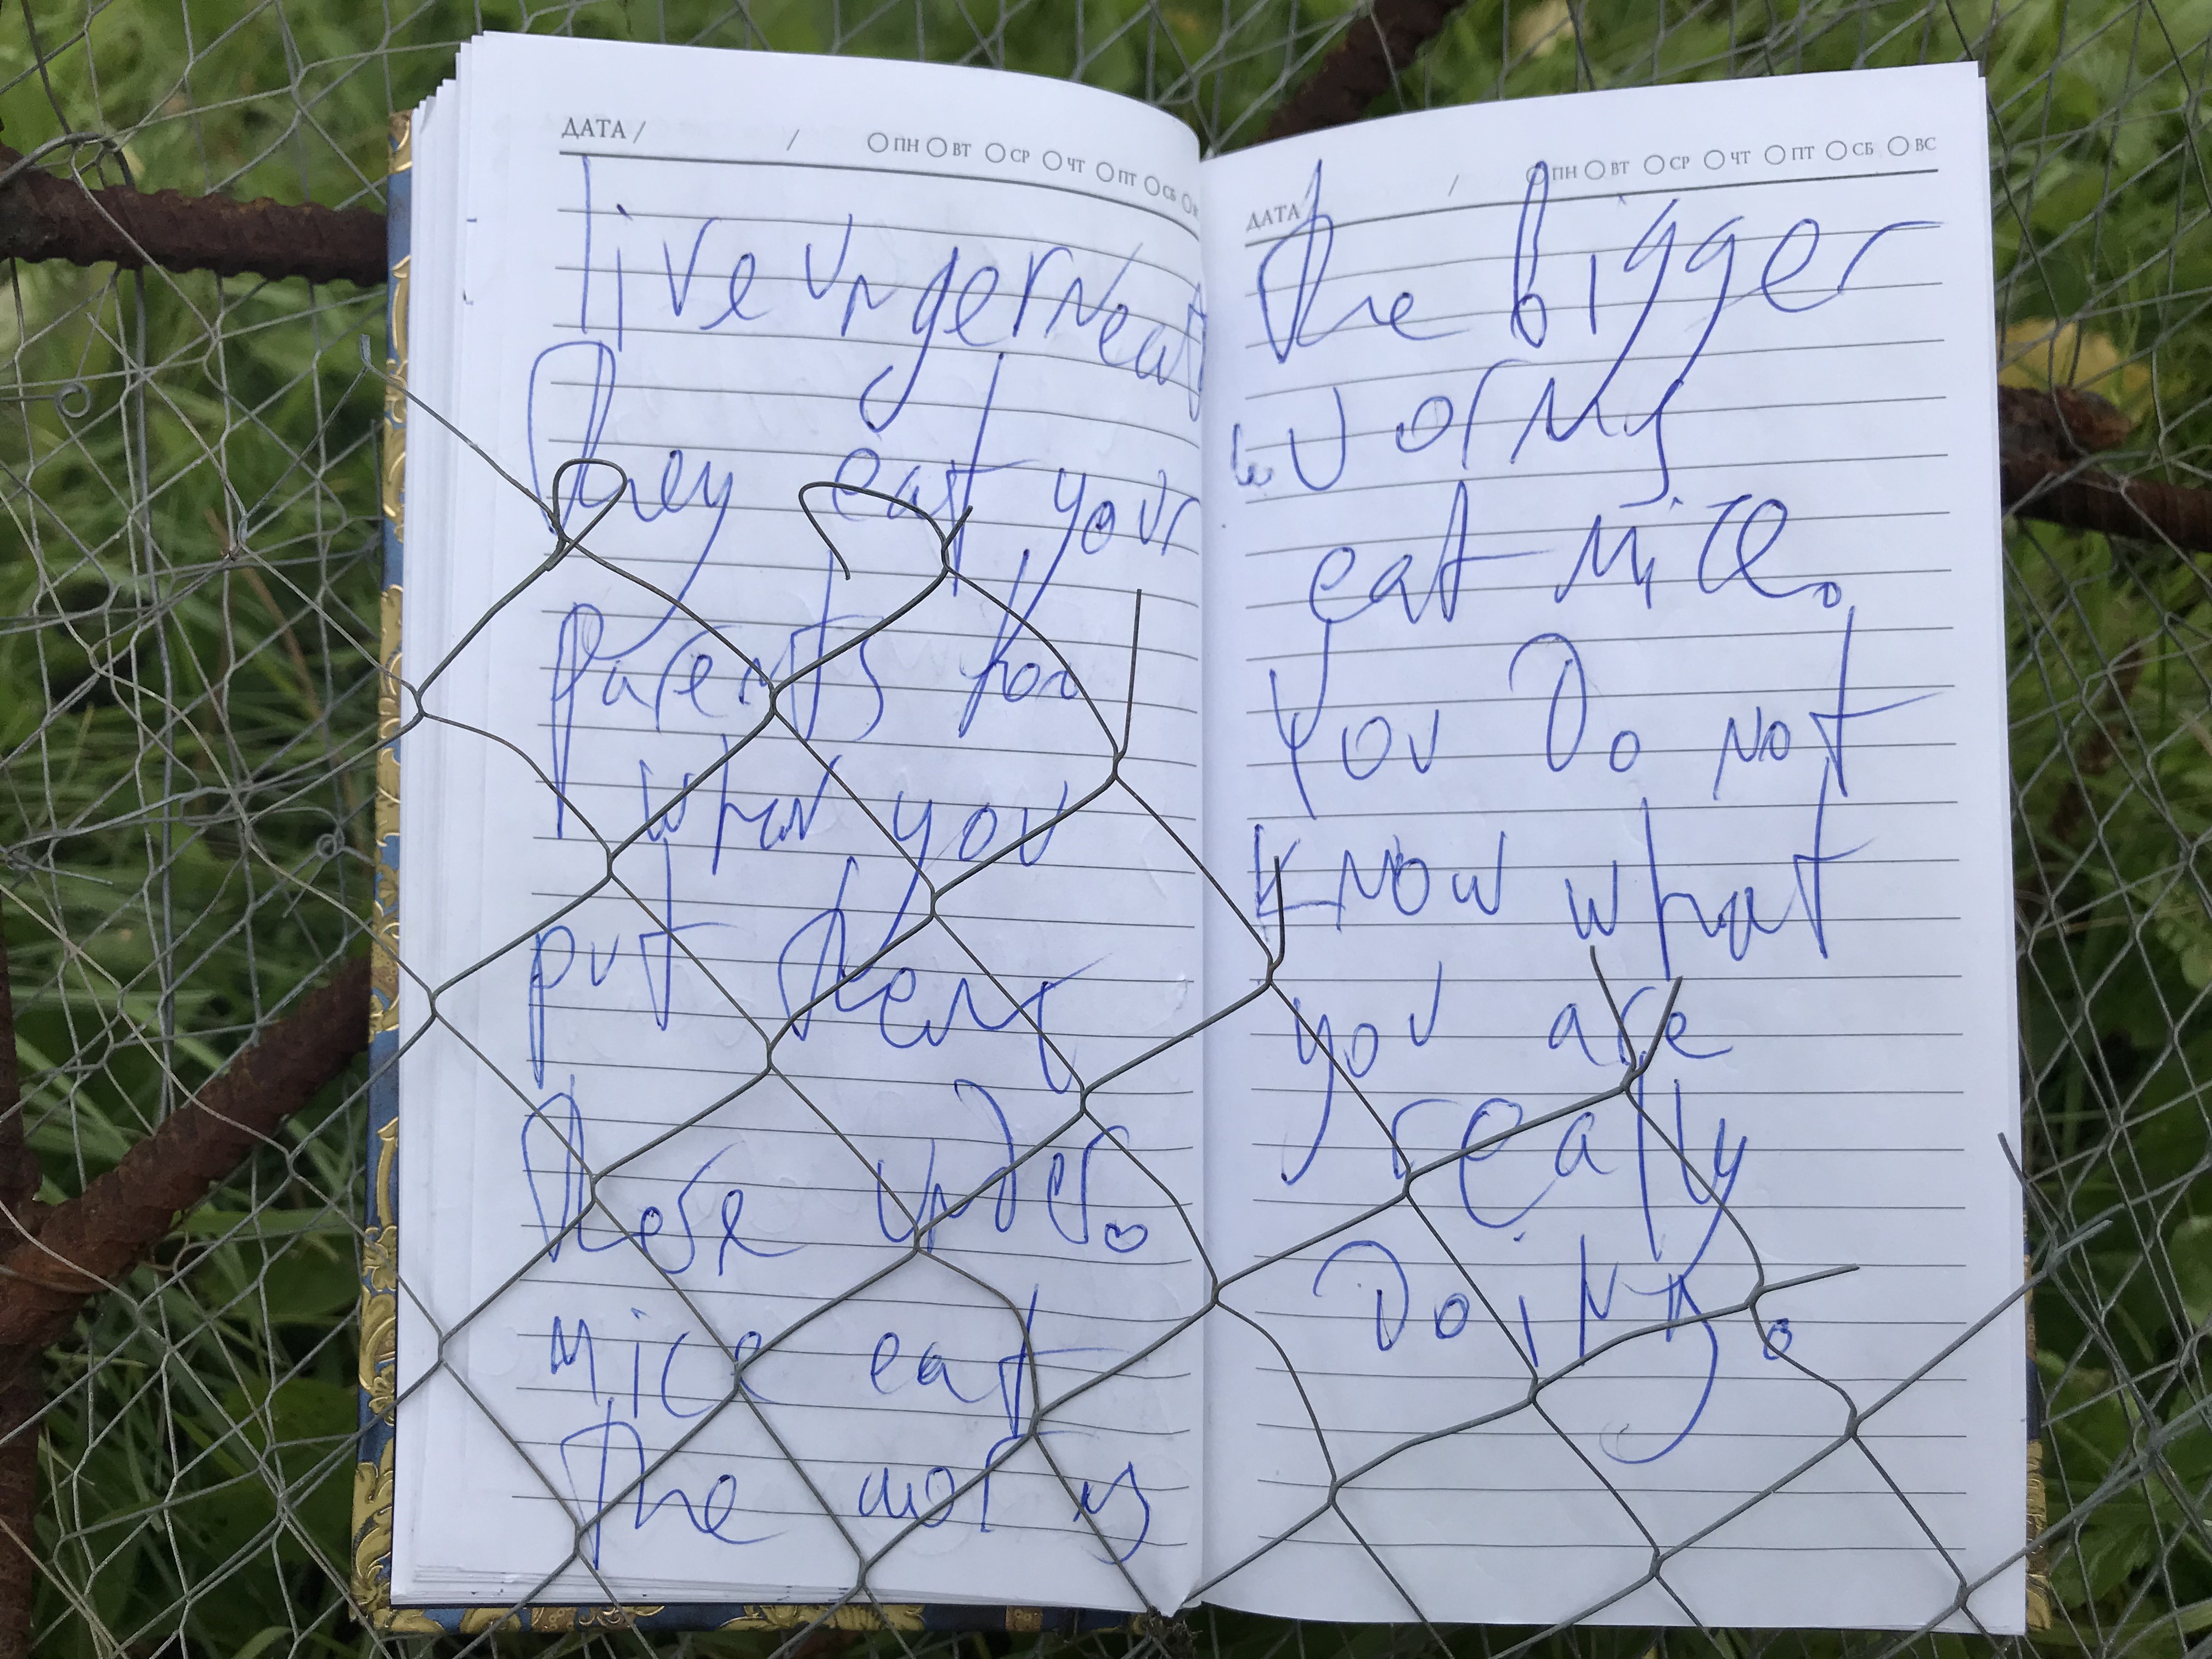 ДАТА / / ПН ВТ СР ЧТ ПТ СБ
live ungerneat
They eat your
parents for
when you
put them
these under.
mice eat
the worms
ДАТА / ПН ВТ СР ЧТ ПТ СБ ВС
The bigger
worms
eat mice.
You Do not
know what
you are
really
Doing.